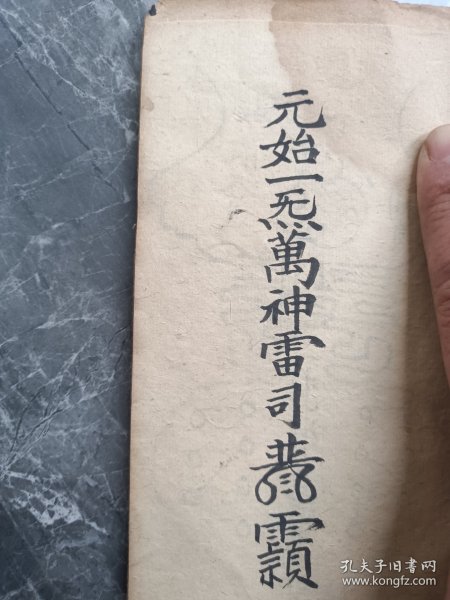 元始一炁萬神雷司
孔夫子旧书网
www.kongfz.com